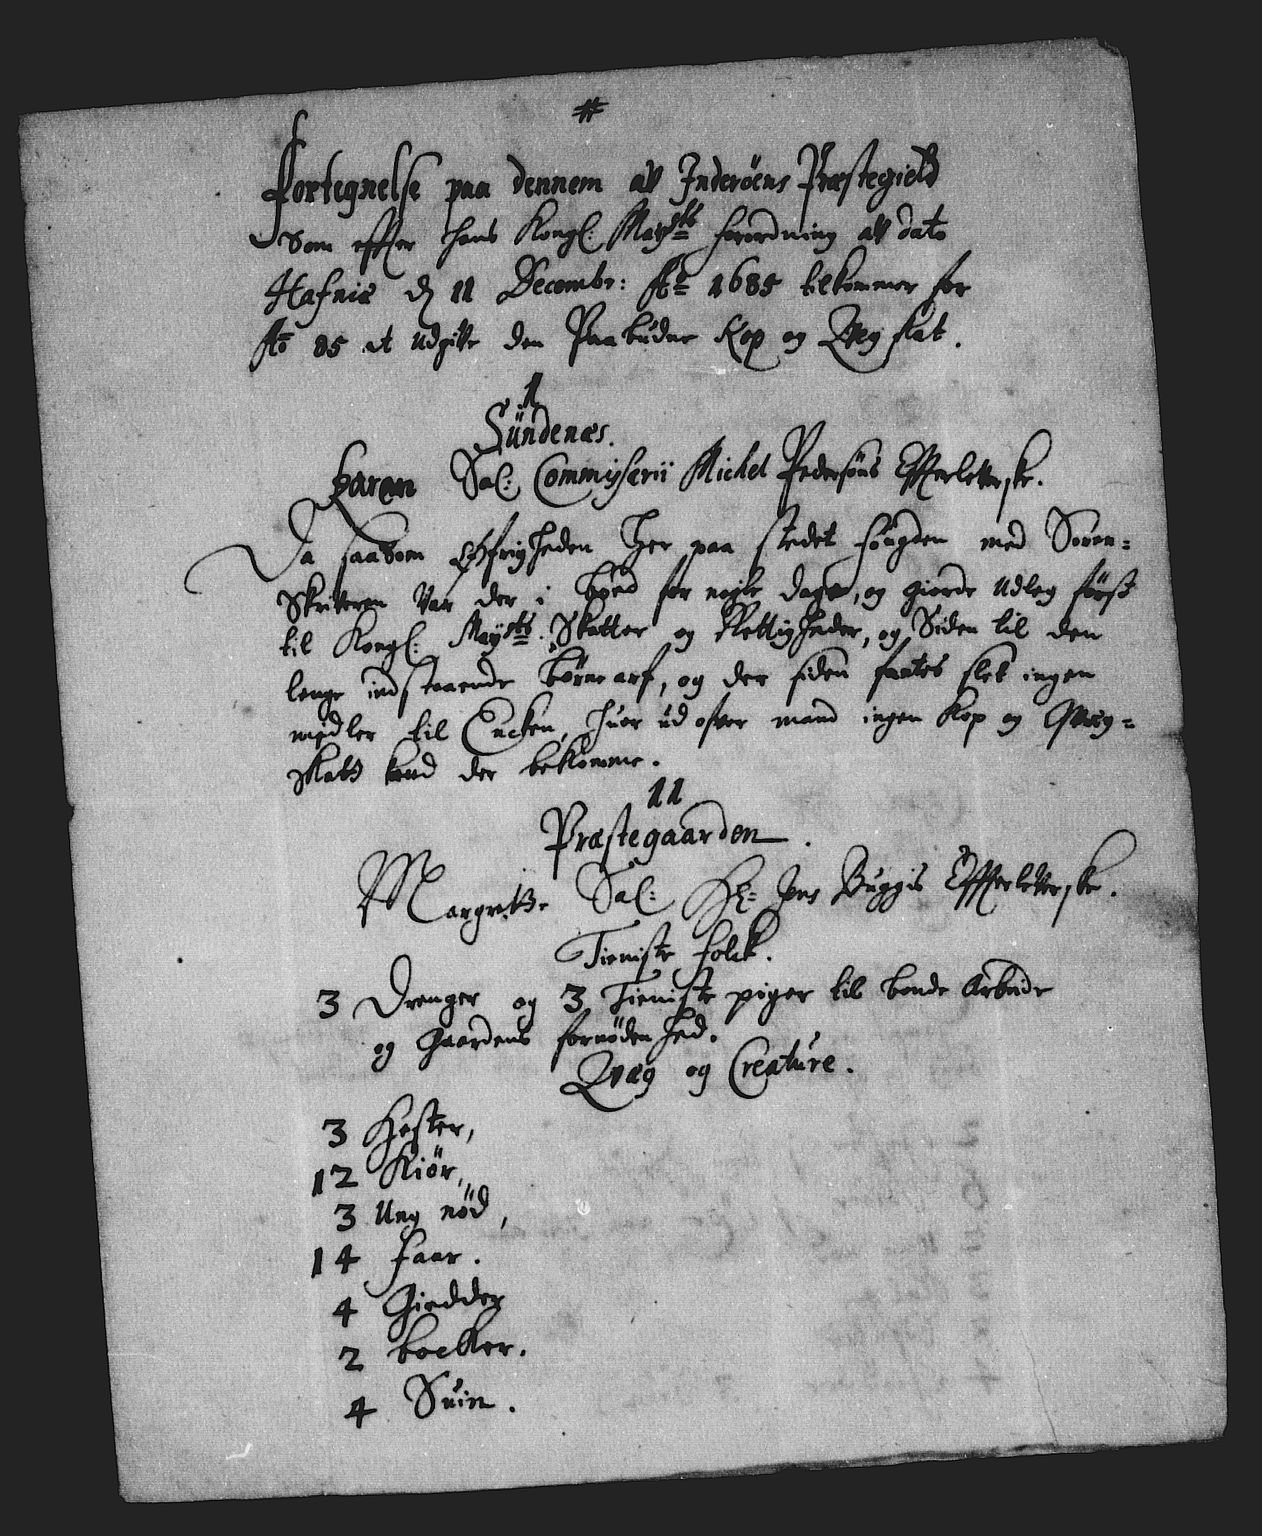 #
Fortegnelse paa dennem aff Inderöens Præstegield
Som effter hans Kongl: Mayts forordning aff dato
Hafniæ dn 11 Decembr: Ao 1685 tilkommer for
Ao 85 at udgiffve den Paabudne Kop og Qveg skat.
1
Sündenæs.
Karen Sal: Commissarii Michel Pedersöns Effterleverske.
Da saasom Öffrigheden her paa stedet fougden med Soren-
Skriveren var der i boed for nogle dage, og giorde udleg först
til Kongl: Mayts. Skatter og Rettigheder, og Siden til den
lenge indstaaende börne arf, og der siden fantes slet ingen
medler til Encken, huor ud ofver mand ingen Kop og Qvæg-
skatt kand der bekomme.
11
Præstegaarden.
Margrette Sal: Hr: Jens Buggis Effterleverske.
Tieniste folck.
3 Drenger og 3 Tieniste piger til bonde Arbeide
og Gaardens fornödenhed.
Qvæg og Creature.
3 Hester,
12 Kiör,
3 Ung nöd,
14 faar.
4 Giedder
2 bocker.
4 Suin.